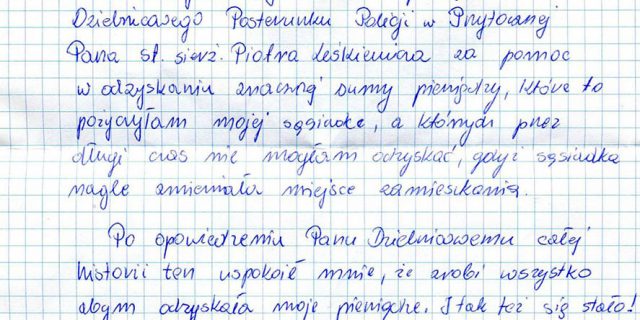 Dzielnicowego Posterunku Policji w Przytocznej
Pana st. sierż. Piotra Leśkiewicza za pomoc
w odzyskaniu znacznej sumy pieniędzy, które to
pożyczyłam mojej sąsiadce, a których przez
długi czas nie mogłam odzyskać, gdyż sąsiadka
nagle zmieniała miejsce zamieszkania.
Po opowiedzeniu Panu Dzielnicowemu całej
historii ten uspokoił mnie, że zrobi wszystko
abym odzyskała moje pieniądze. I tak też się stało!